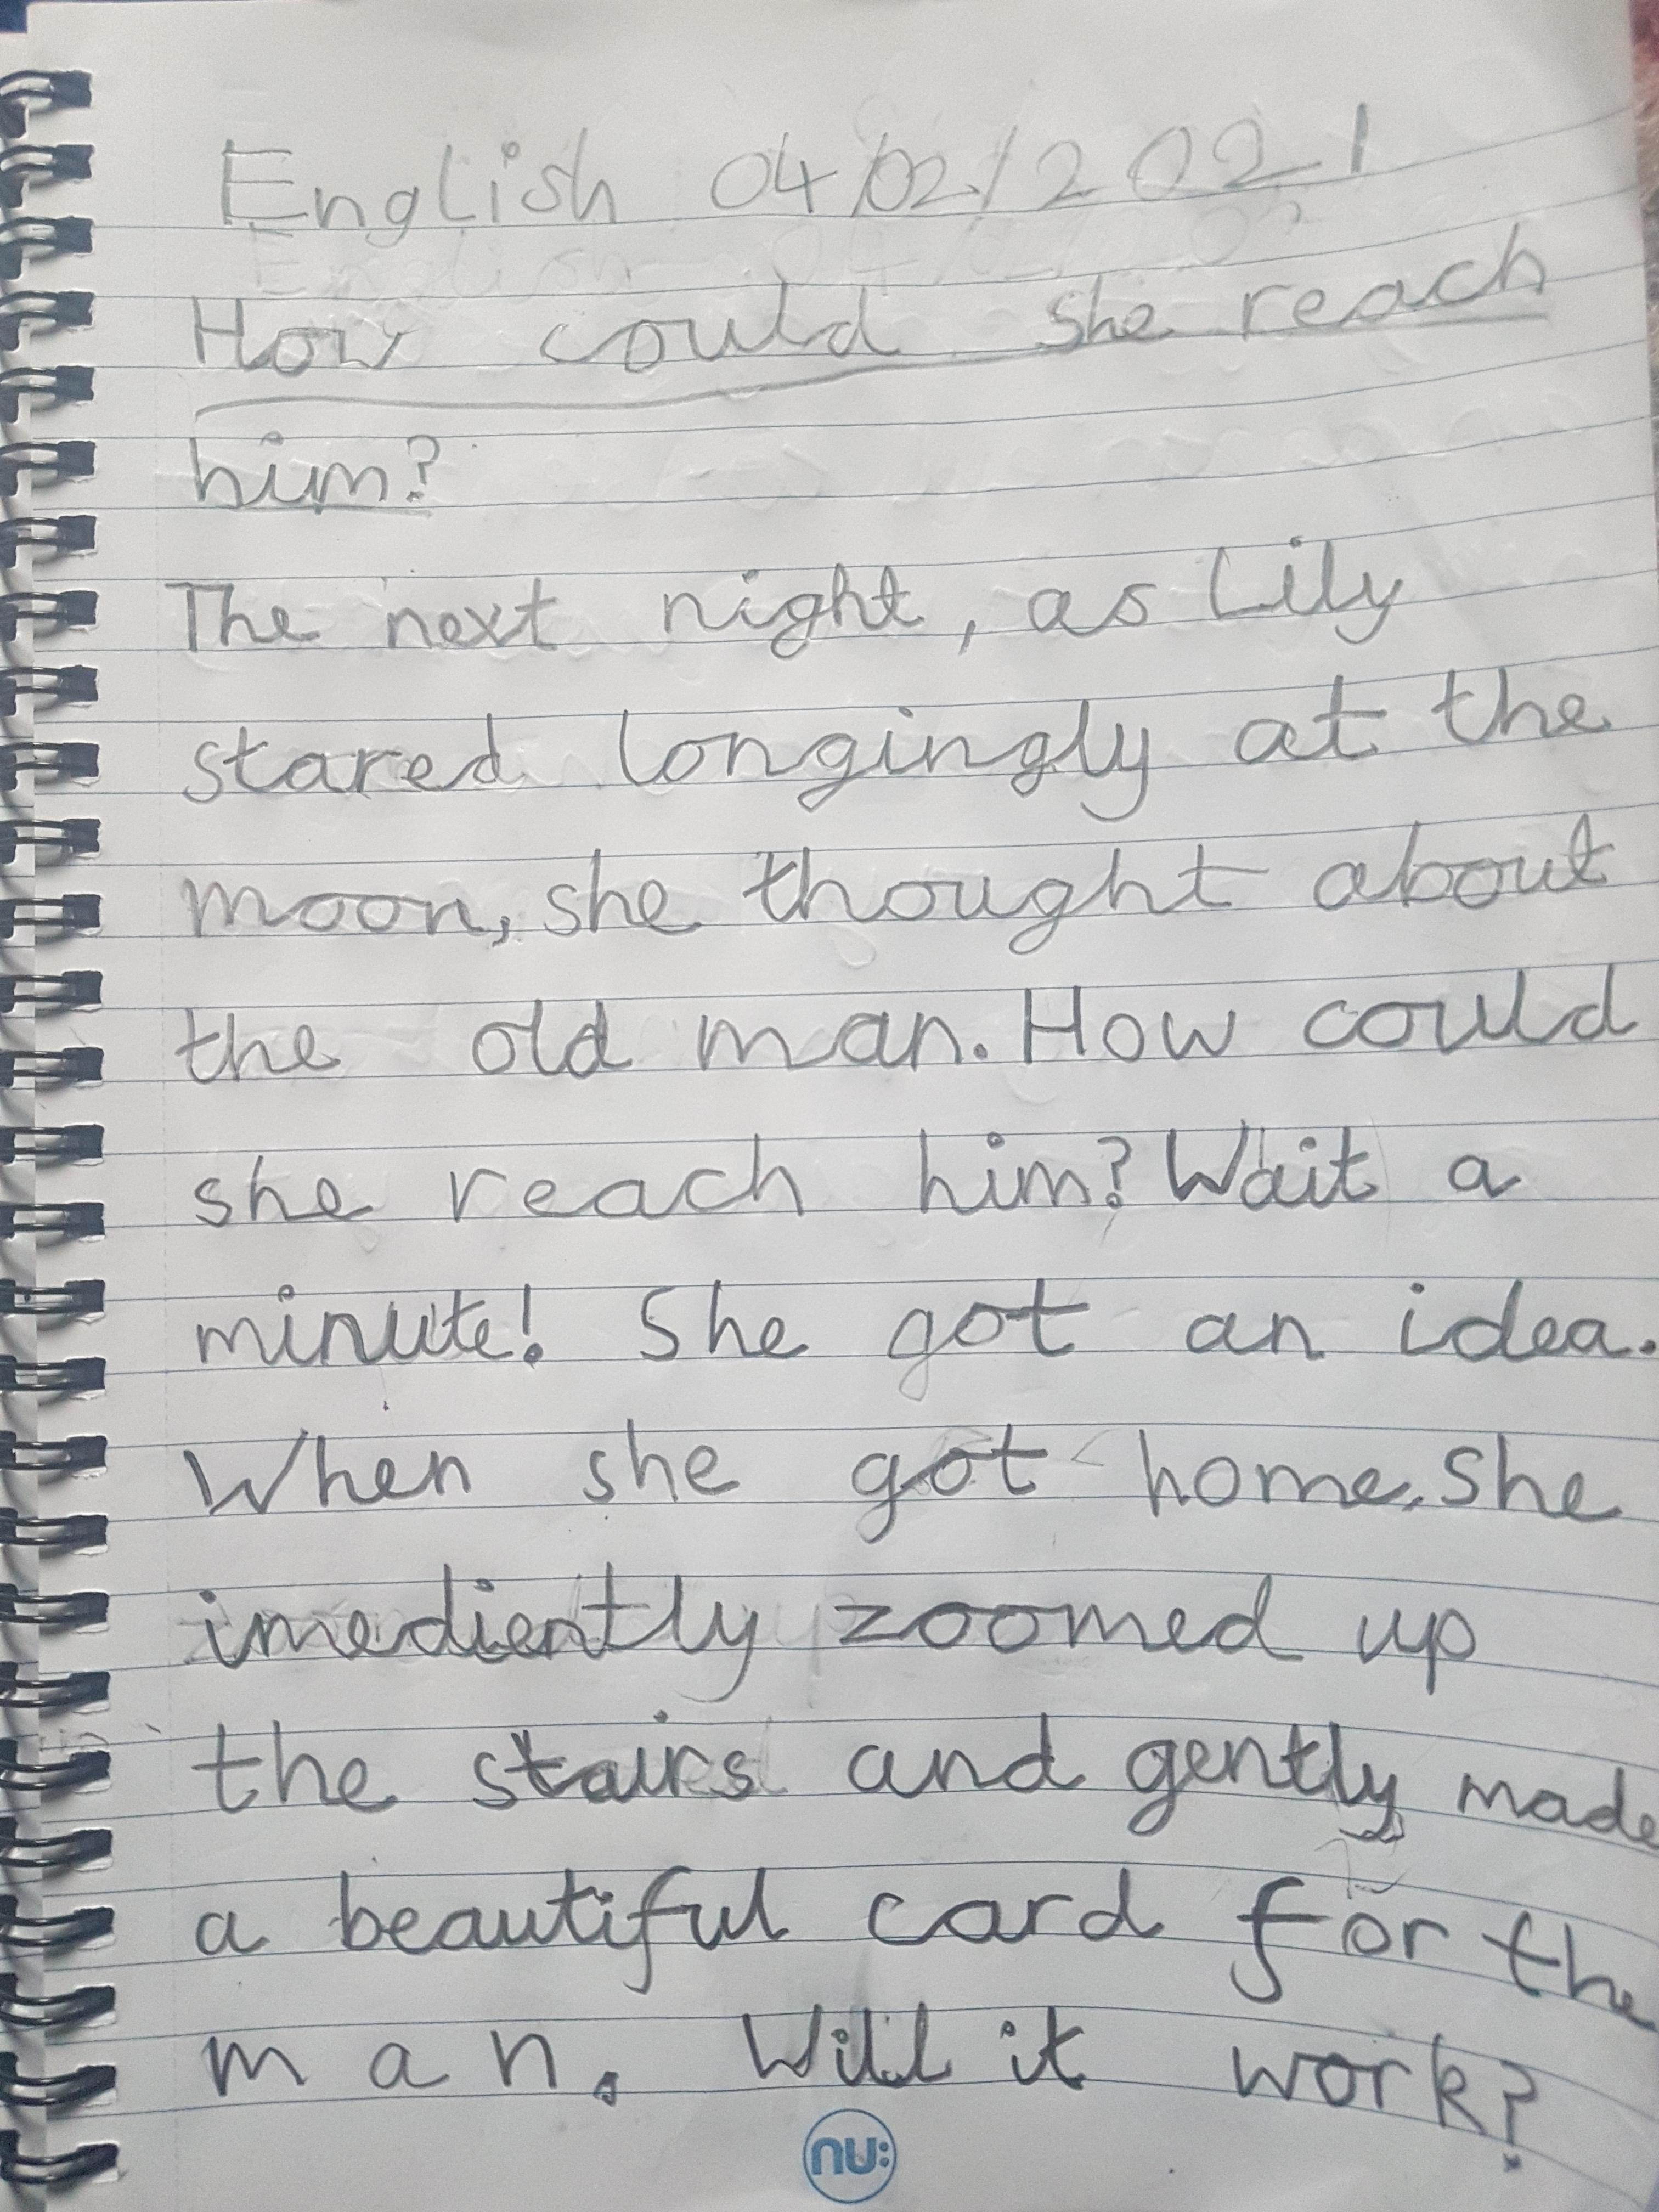 English 04/02/2021
How could she reach
him?
The next night, as Lily
stared longingly at the
moon, she thought about
the old man. How could
she reach him? Wait a
minute! She got an idea.
When she got home, she
imediently zoomed up
the stairs and gently made
a beautiful card for the
man. Will it work?
nu: